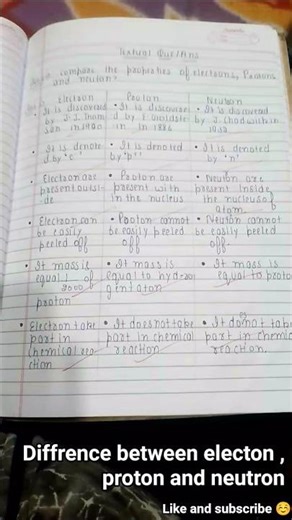 Textual Que/Ans
compare the properties of electrons, Protons
and neutron?
Electron Proton Neutron
• It is discovered • It is discovered • It is discovered
by J.J. Thom d by E. Goldste by J. Chadwith in
son in in in 1886 1932
• It is denote • It is denoted • It is denoted
d by 'e' by 'p' by 'n'
• Electron are • Proton are • Neutron are
present outsi present with present Inside
de in the nucleus the nucleus of
atom.
• Electron can • Proton cannot • Neutron cannot
be easily be easily peeled be easily peeled
peeled off off off
• It mass is • It mass is • It mass is
equal of equal to hydro equal to proto
2000 gen atom
proton
• Electron take • It does not take • It do not take
part in part in chemical part in chemical
chemical rea reaction reaction.
ction
Diffrence between electon ,
proton and neutron
Like and subscribe ☺️